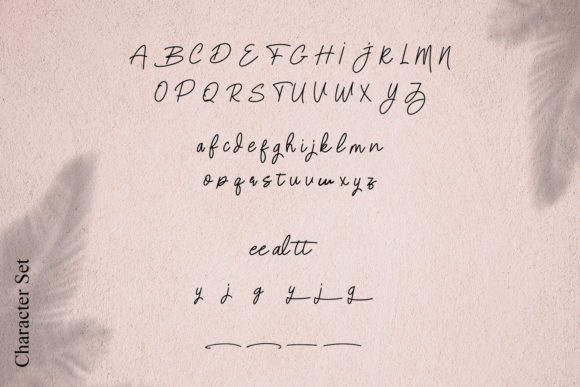 A B C D E F G H I J K L M N
O P Q R S T U V W X Y Z
a b c d e f g h i j k l m n
o p q r s t u v w x y z
ee al tt
y j g y j g
Character Set